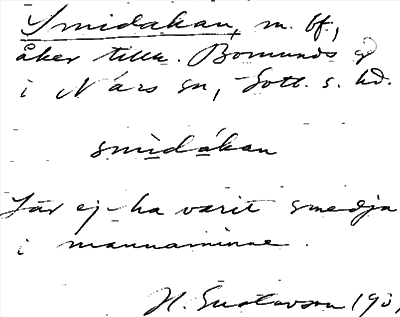 Smidåkan, m. bf.,
åker tillh. Bomunds gd
i När sn, Gotl. s. hd.
smìdåkan
Lär ej ha varit smedja
i mannaminne.
H. Gustavson 193